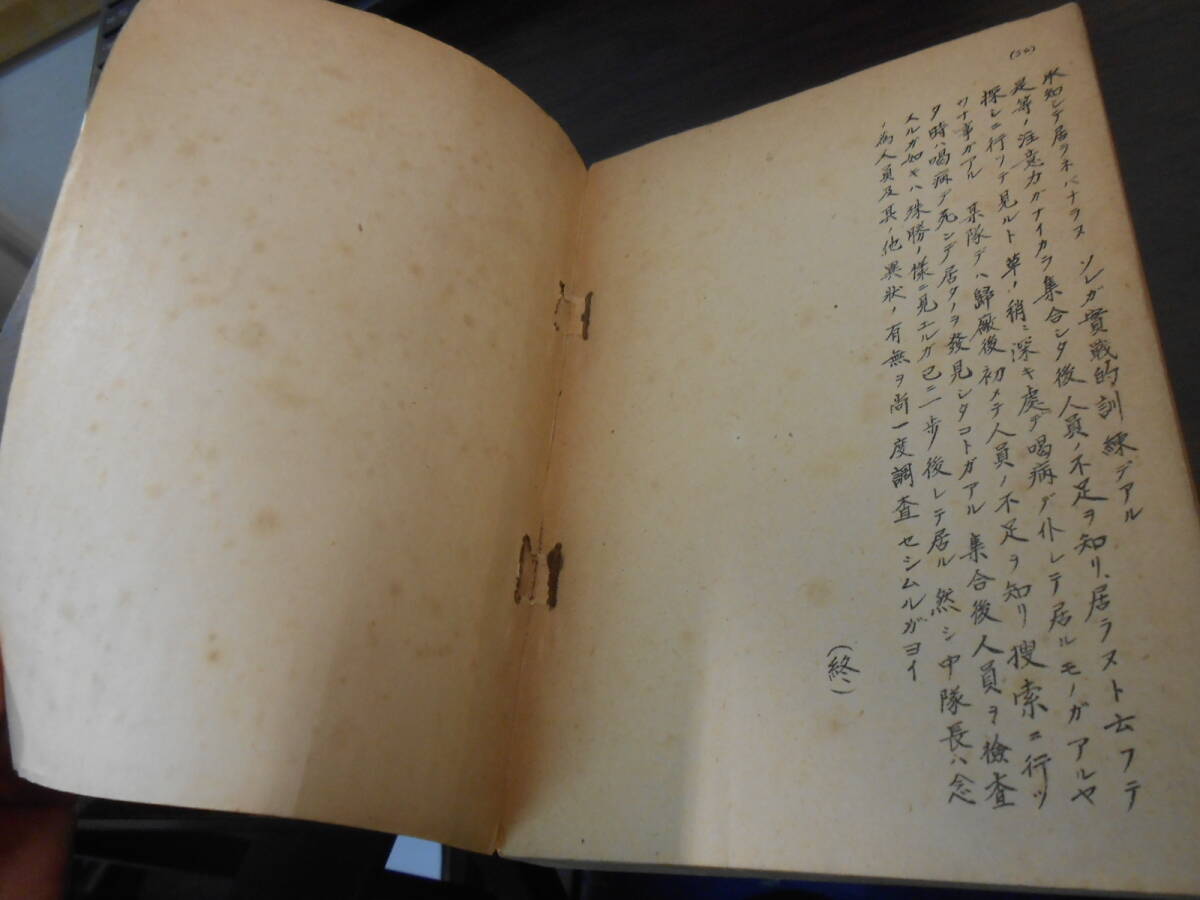 承知シテ居ラネバナラヌ ソレガ實戰的訓練デアル
是等ノ注意力ガナイカラ集合シタ後人員ノ不足ヲ知リ、居ラヌト云フテ
探シニ行ツテ見ルト草ノ稍々深キ處デ喝病デ仆レテ居ルモノガアルヤ
ウナ事ガアル 某隊デハ歸廠後初メテ人員ノ不足ヲ知リ搜索ニ行ツ
タ時ハ喝病デ死ンデ居タノヲ發見シタコトガアル 集合後人員ヲ檢査
スルガ如キハ殊勝ノ樣ニ見エルガ已ニ一步後レテ居ル 然シ中隊長ハ念
ノ為人員及其ノ他異狀ノ有無ヲ尚一度調査セシムルガヨイ
(終)